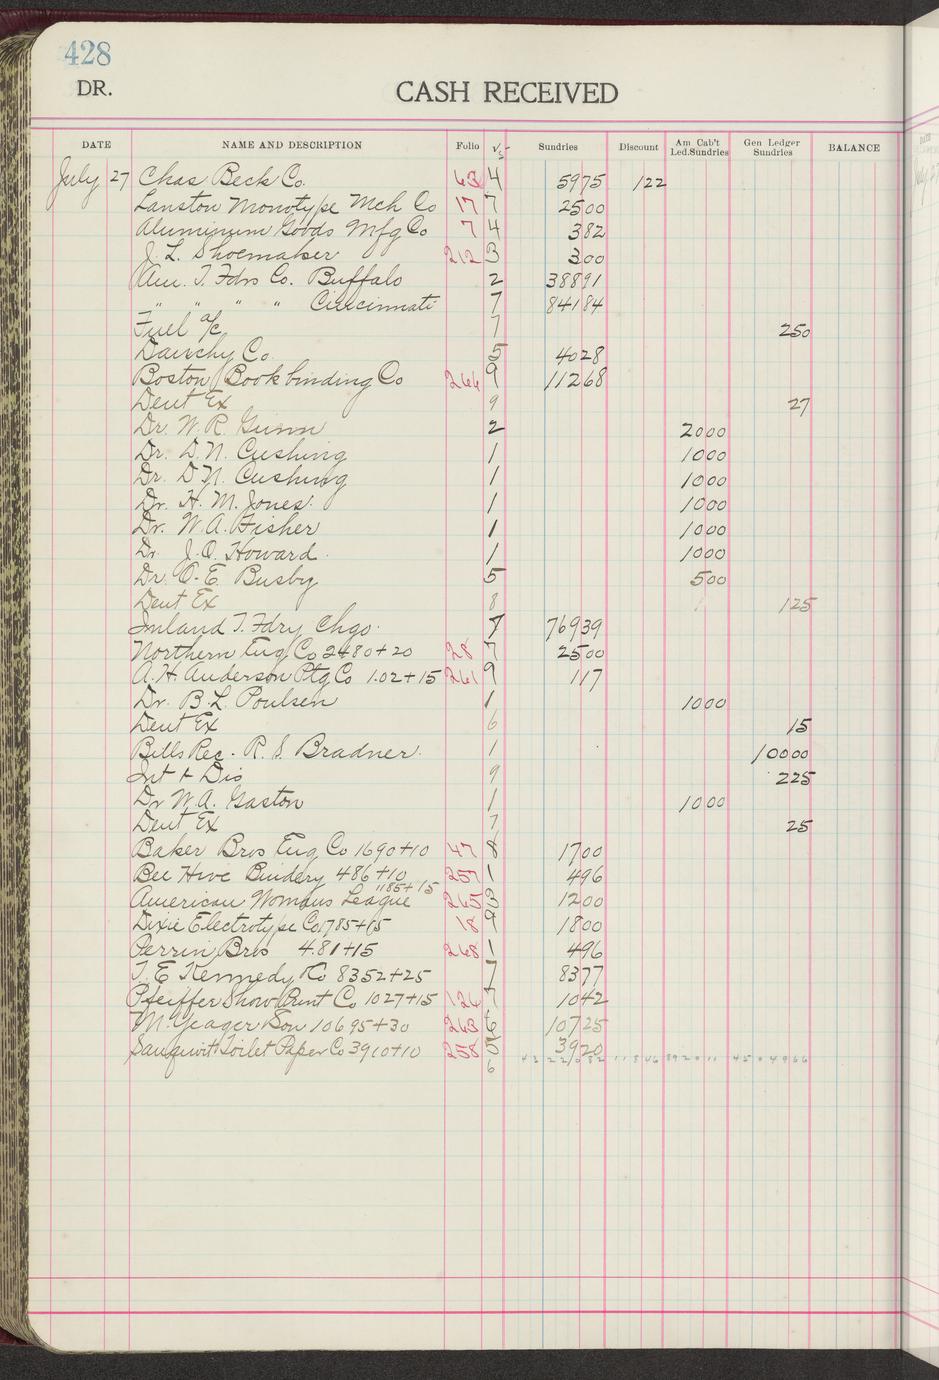 428
DR. CASH RECEIVED
DATE NAME AND DESCRIPTION Folio Sundries Discount Am Cab't Led.Sundries Gen Ledger Sundries BALANCE
July 27 Chas Beck Co. 63 4 5975 122
Lanston Monotype Mch Co 17 7 2500
Aluminum Goods Mfg Co 7 4 382
J. L. Shoemaker 212 3 300
Am. T. Fdrs Co. Buffalo 2 38891
" " " " Cincinnati 7 84184
Fuel a/c 7 250
Co. 5 4028
Boston Bookbinding Co 264 9 11268
Dent Ex 9 27
Dr. W. R. Gunn 2 2000
Dr. D. N. Cushing 1 1000
Dr. D N. Cushing 1 1000
Dr. H. M. Jones 1 1000
Dr. W. A. Fisher 1 1000
Dr. J. O. Howard 1 1000
Dr. O. E. Busby 5 500
Dent Ex 8 125
Inland T. Fdry Chgo. 7 76939
Northern Eng Co 2480+20 28 7 2500
A. H. Anderson Ptg Co 1.02+15 261 9 117
Dr. B. L. Poulsen 1 1000
Dent Ex 6 15
Bills Rec. R. S. Bradner. 1 10000
Int & Dis 9 225
Dr W. A. Gaston 1 1000
Dent Ex 7 25
Baker Bros Eng Co 1690+10 47 8 1700
Bee Hive Bindery 486+10 257 1 496
American Womans League 1185+15 265 3 1200
Dixie Electrotype Co 1785+15 18 9 1800
Perrin Bros 4.81+15 268 1 496
T. E. Kennedy Co 8352+25 7 8377
Pfeiffer Show Print Co 1027+15 126 7 1042
M. Yeager Son 10695+30 263 6 10725
Toilet Paper Co 3910+10 258 3920
6